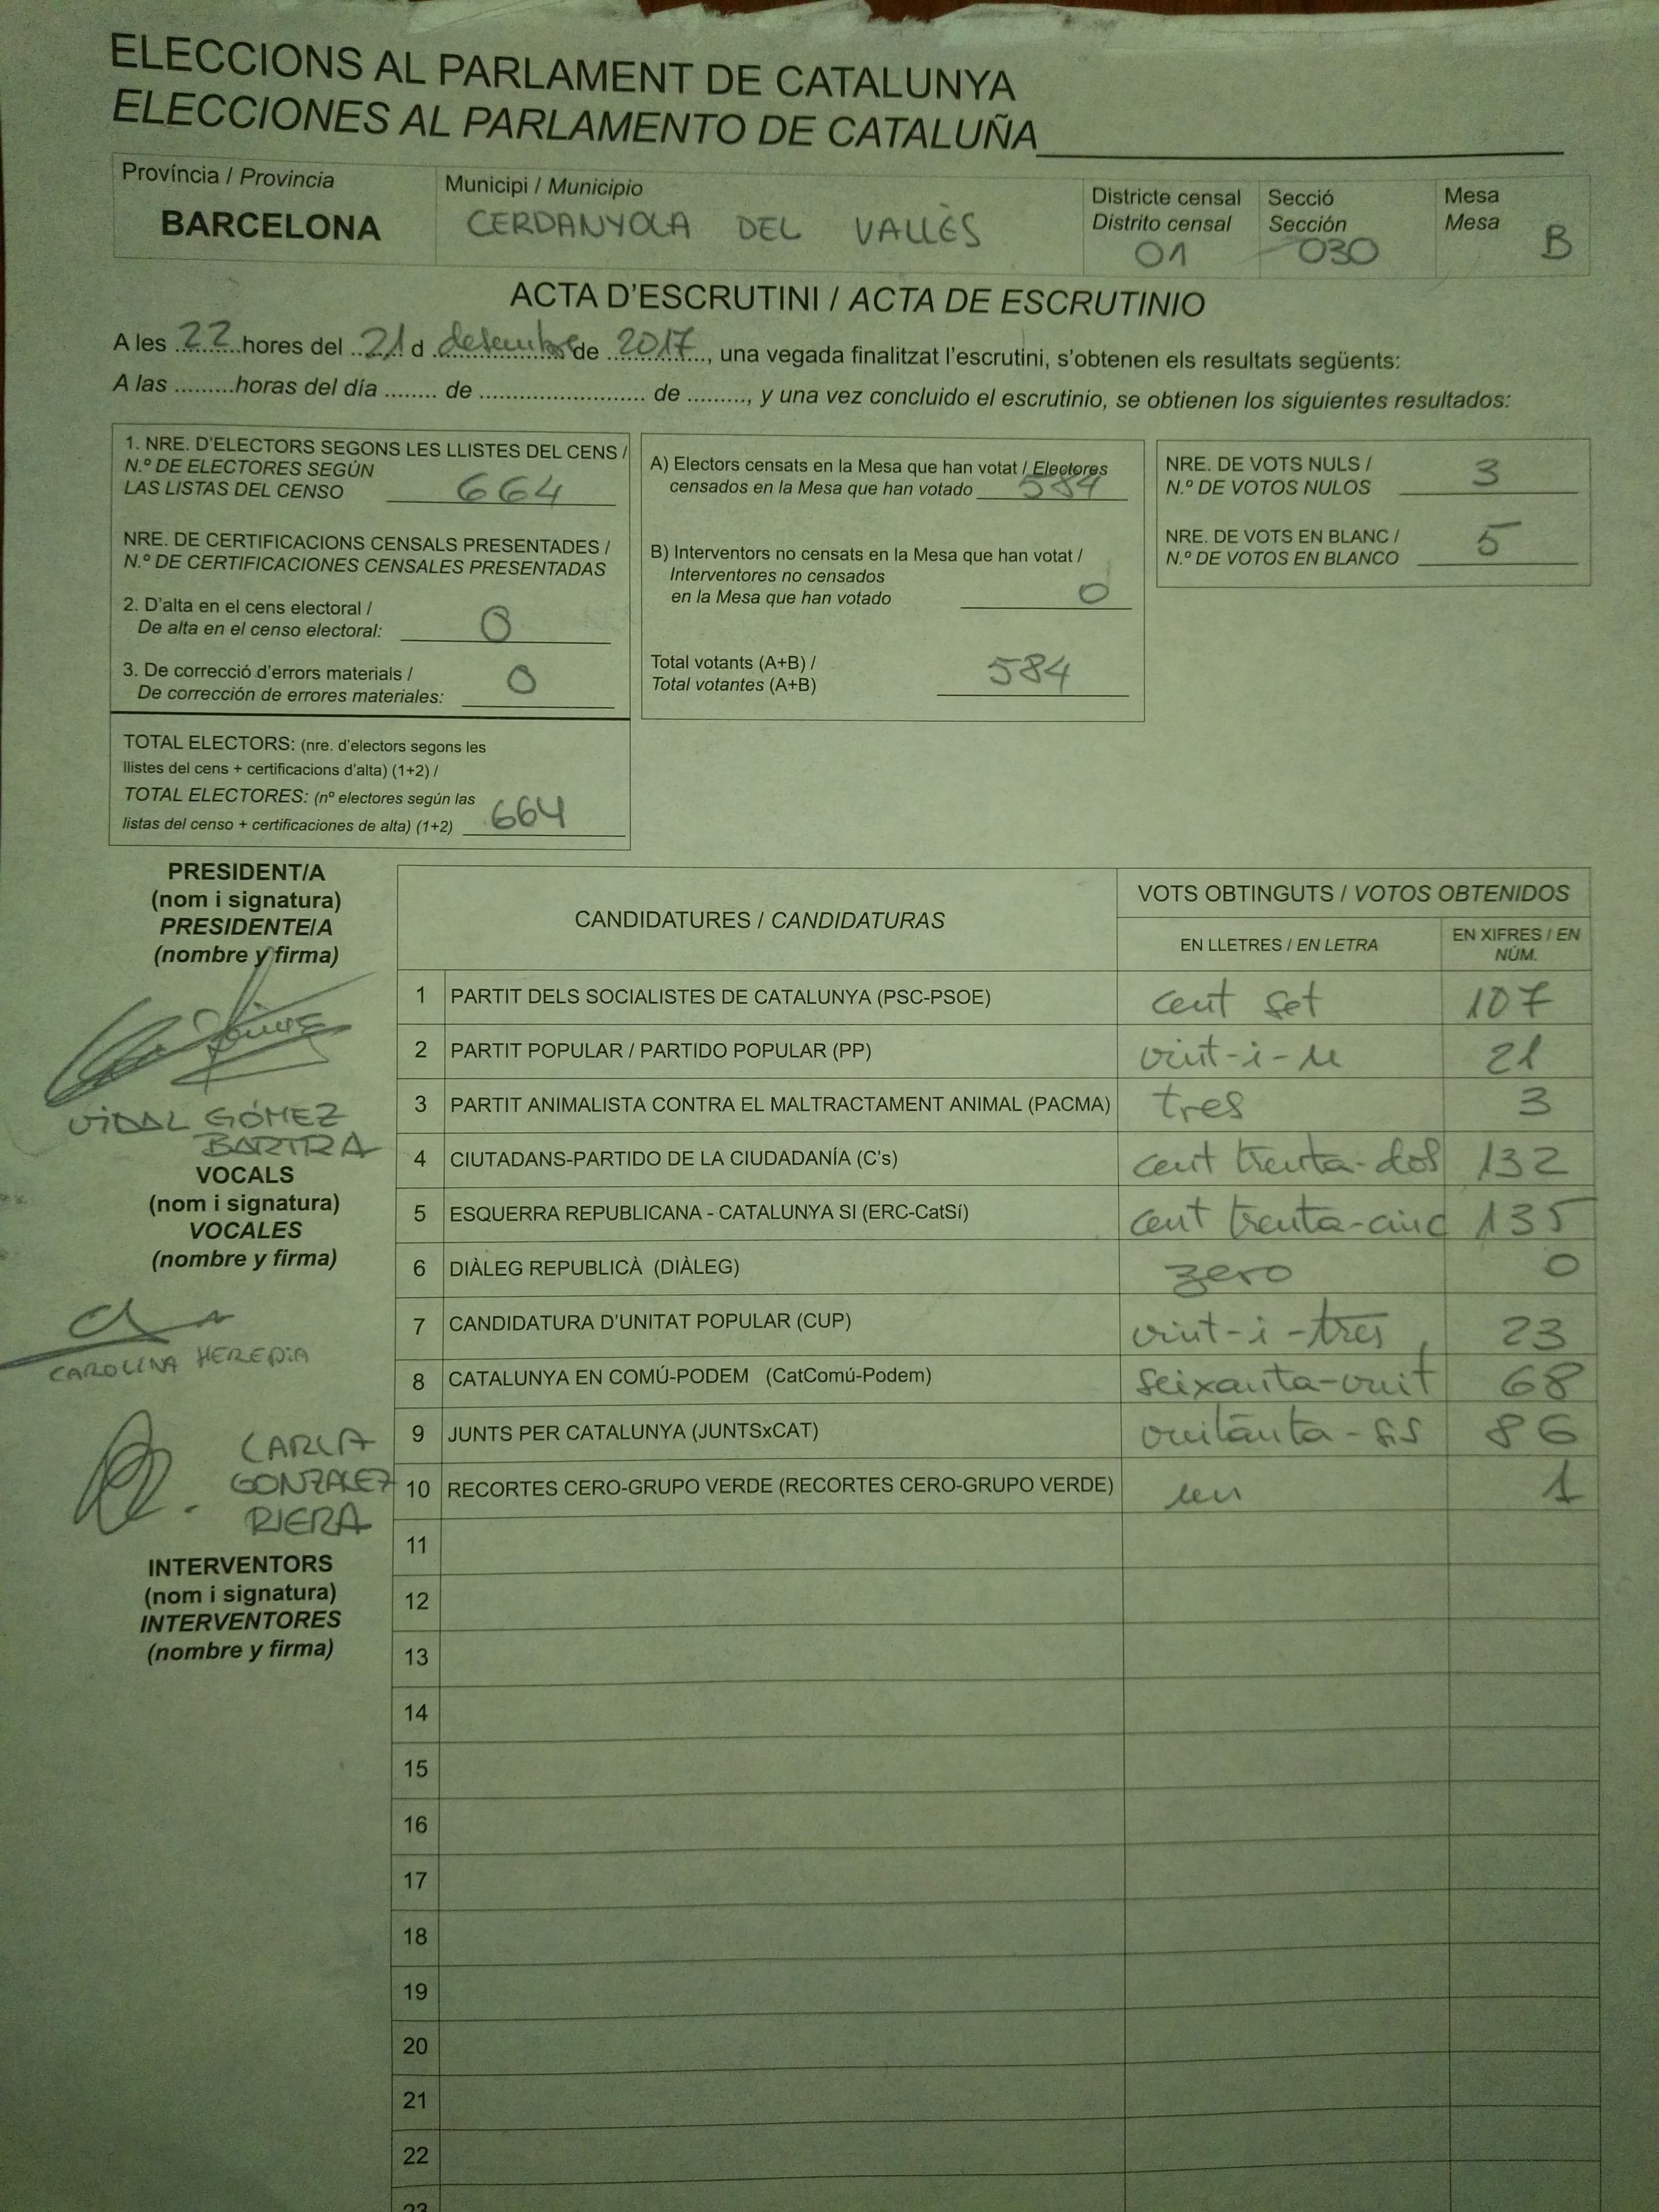 ELECCIONS AL PARLAMENT DE CATALUNYA
ELECCIONES AL PARLAMENTO DE CATALUÑA
Província / Provincia
BARCELONA
Municipi / Municipio
CERDANYOLA DEL VALLÈS
Districte censal
Distrito censal
01
Secció
Sección
030
Mesa
Mesa
B
ACTA D'ESCRUTINI / ACTA DE ESCRUTINIO
A les 22 hores del 21 d desembre de 2017, una vegada finalitzat l'escrutini, s'obtenen els resultats següents:
A las .........horas del día ........ de ......................... de ........., y una vez concluido el escrutinio, se obtienen los siguientes resultados:
1. NRE. D'ELECTORS SEGONS LES LLISTES DEL CENS /
N.º DE ELECTORES SEGÚN
LAS LISTAS DEL CENSO 664
NRE. DE CERTIFICACIONS CENSALS PRESENTADES /
N.º DE CERTIFICACIONES CENSALES PRESENTADAS
2. D'alta en el cens electoral /
De alta en el censo electoral: 0
3. De correcció d'errors materials /
De corrección de errores materiales: 0
TOTAL ELECTORS: (nre. d'electors segons les
llistes del cens + certificacions d'alta) (1+2) /
TOTAL ELECTORES: (nº electores según las
listas del censo + certificaciones de alta) (1+2) 664
A) Electors censats en la Mesa que han votat / Electores
censados en la Mesa que han votado 584
B) Interventors no censats en la Mesa que han votat /
Interventores no censados
en la Mesa que han votado 0
Total votants (A+B) /
Total votantes (A+B) 584
NRE. DE VOTS NULS /
N.º DE VOTOS NULOS 3
NRE. DE VOTS EN BLANC /
N.º DE VOTOS EN BLANCO 5
PRESIDENT/A
(nom i signatura)
PRESIDENTE/A
(nombre y firma)
VIDAL GÓMEZ
BARTRA
VOCALS
(nom i signatura)
VOCALES
(nombre y firma)
CAROLINA HEREDIA
CARLA
GONZALEZ
RIERA
INTERVENTORS
(nom i signatura)
INTERVENTORES
(nombre y firma)
CANDIDATURES / CANDIDATURAS
VOTS OBTINGUTS / VOTOS OBTENIDOS
EN LLETRES / EN LETRA
EN XIFRES / EN
NÚM.
1 PARTIT DELS SOCIALISTES DE CATALUNYA (PSC-PSOE) cent set 107
2 PARTIT POPULAR / PARTIDO POPULAR (PP) vint-i-u 21
3 PARTIT ANIMALISTA CONTRA EL MALTRACTAMENT ANIMAL (PACMA) tres 3
4 CIUTADANS-PARTIDO DE LA CIUDADANÍA (C's) cent trenta-dos 132
5 ESQUERRA REPUBLICANA - CATALUNYA SI (ERC-CatSí) cent trenta-cinc 135
6 DIÀLEG REPUBLICÀ (DIÀLEG) zero 0
7 CANDIDATURA D'UNITAT POPULAR (CUP) vint-i-tres 23
8 CATALUNYA EN COMÚ-PODEM (CatComú-Podem) seixanta-vuit 68
9 JUNTS PER CATALUNYA (JUNTSxCAT) vuitanta-sis 86
10 RECORTES CERO-GRUPO VERDE (RECORTES CERO-GRUPO VERDE) un 1
11
12
13
14
15
16
17
18
19
20
21
22
23